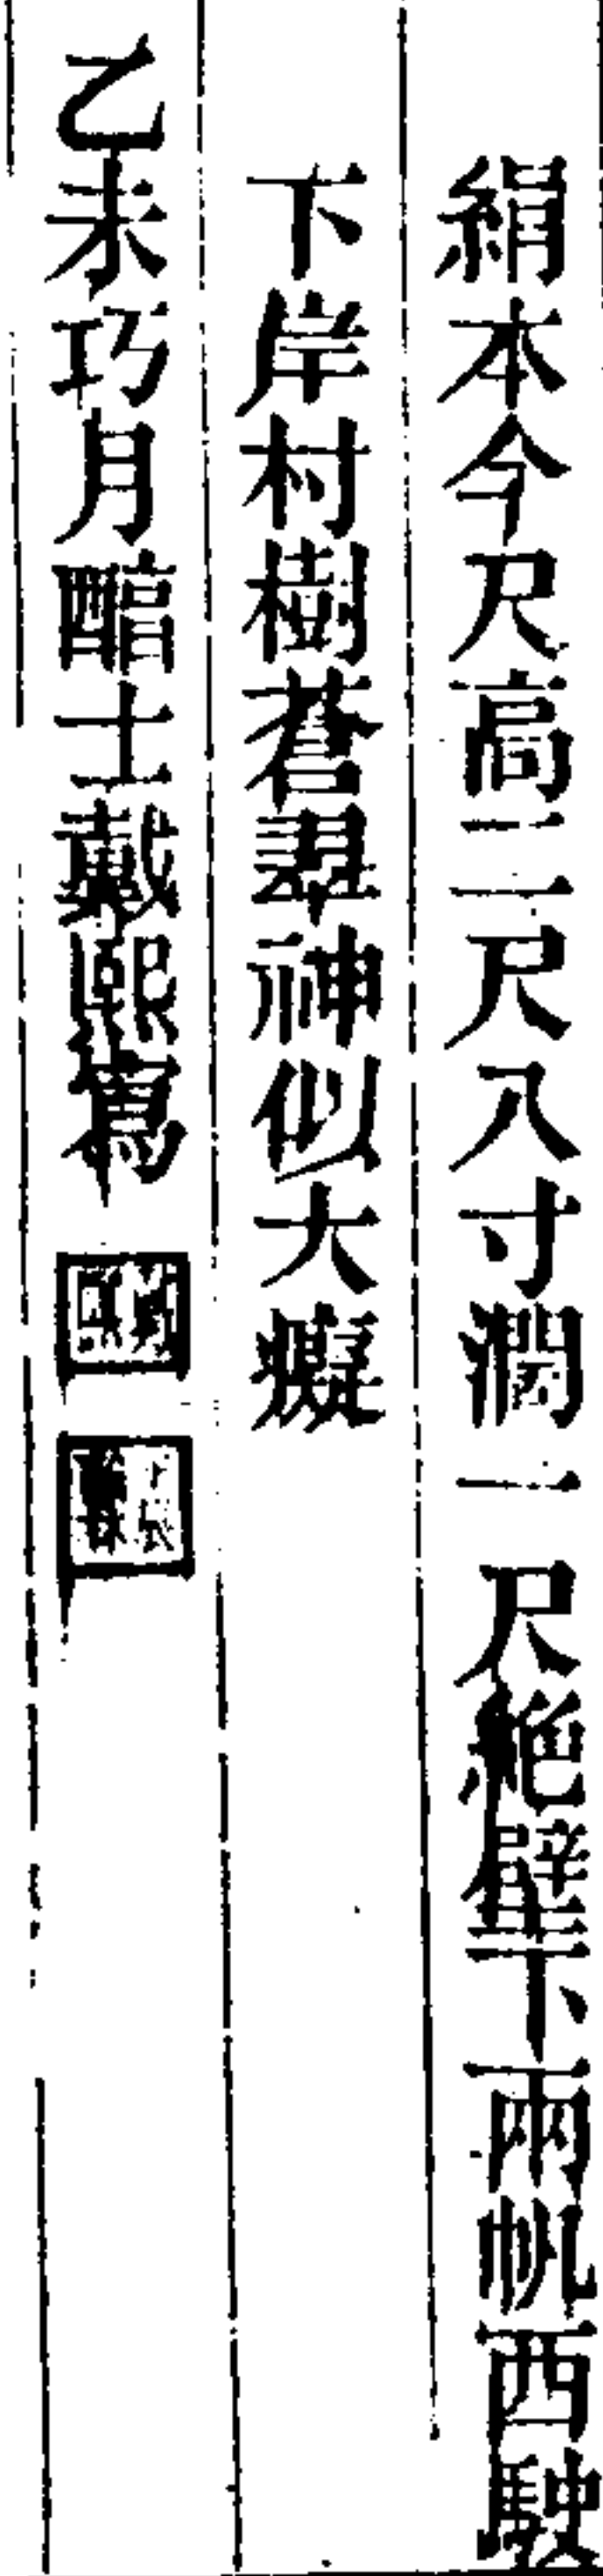 絹本今尺高二尺八寸濶一尺絕壁下兩帆西駛
下岸村樹蒼翠神似大癡
乙未巧月醇士戴熙寫